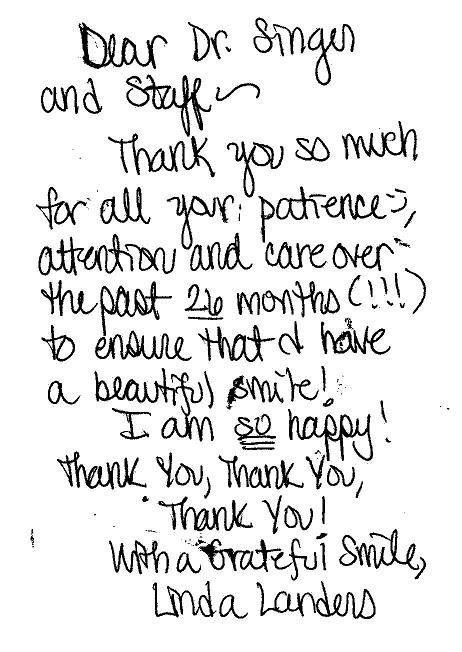 Dear Dr. Singer
and Staff~
Thank you so much
for all your patience,
attention and care over
the past 26 months (!!!)
to ensure that I have
a beautiful smile!
I am so happy!
Thank You, Thank You,
Thank You!
With a Grateful Smile,
Linda Landers